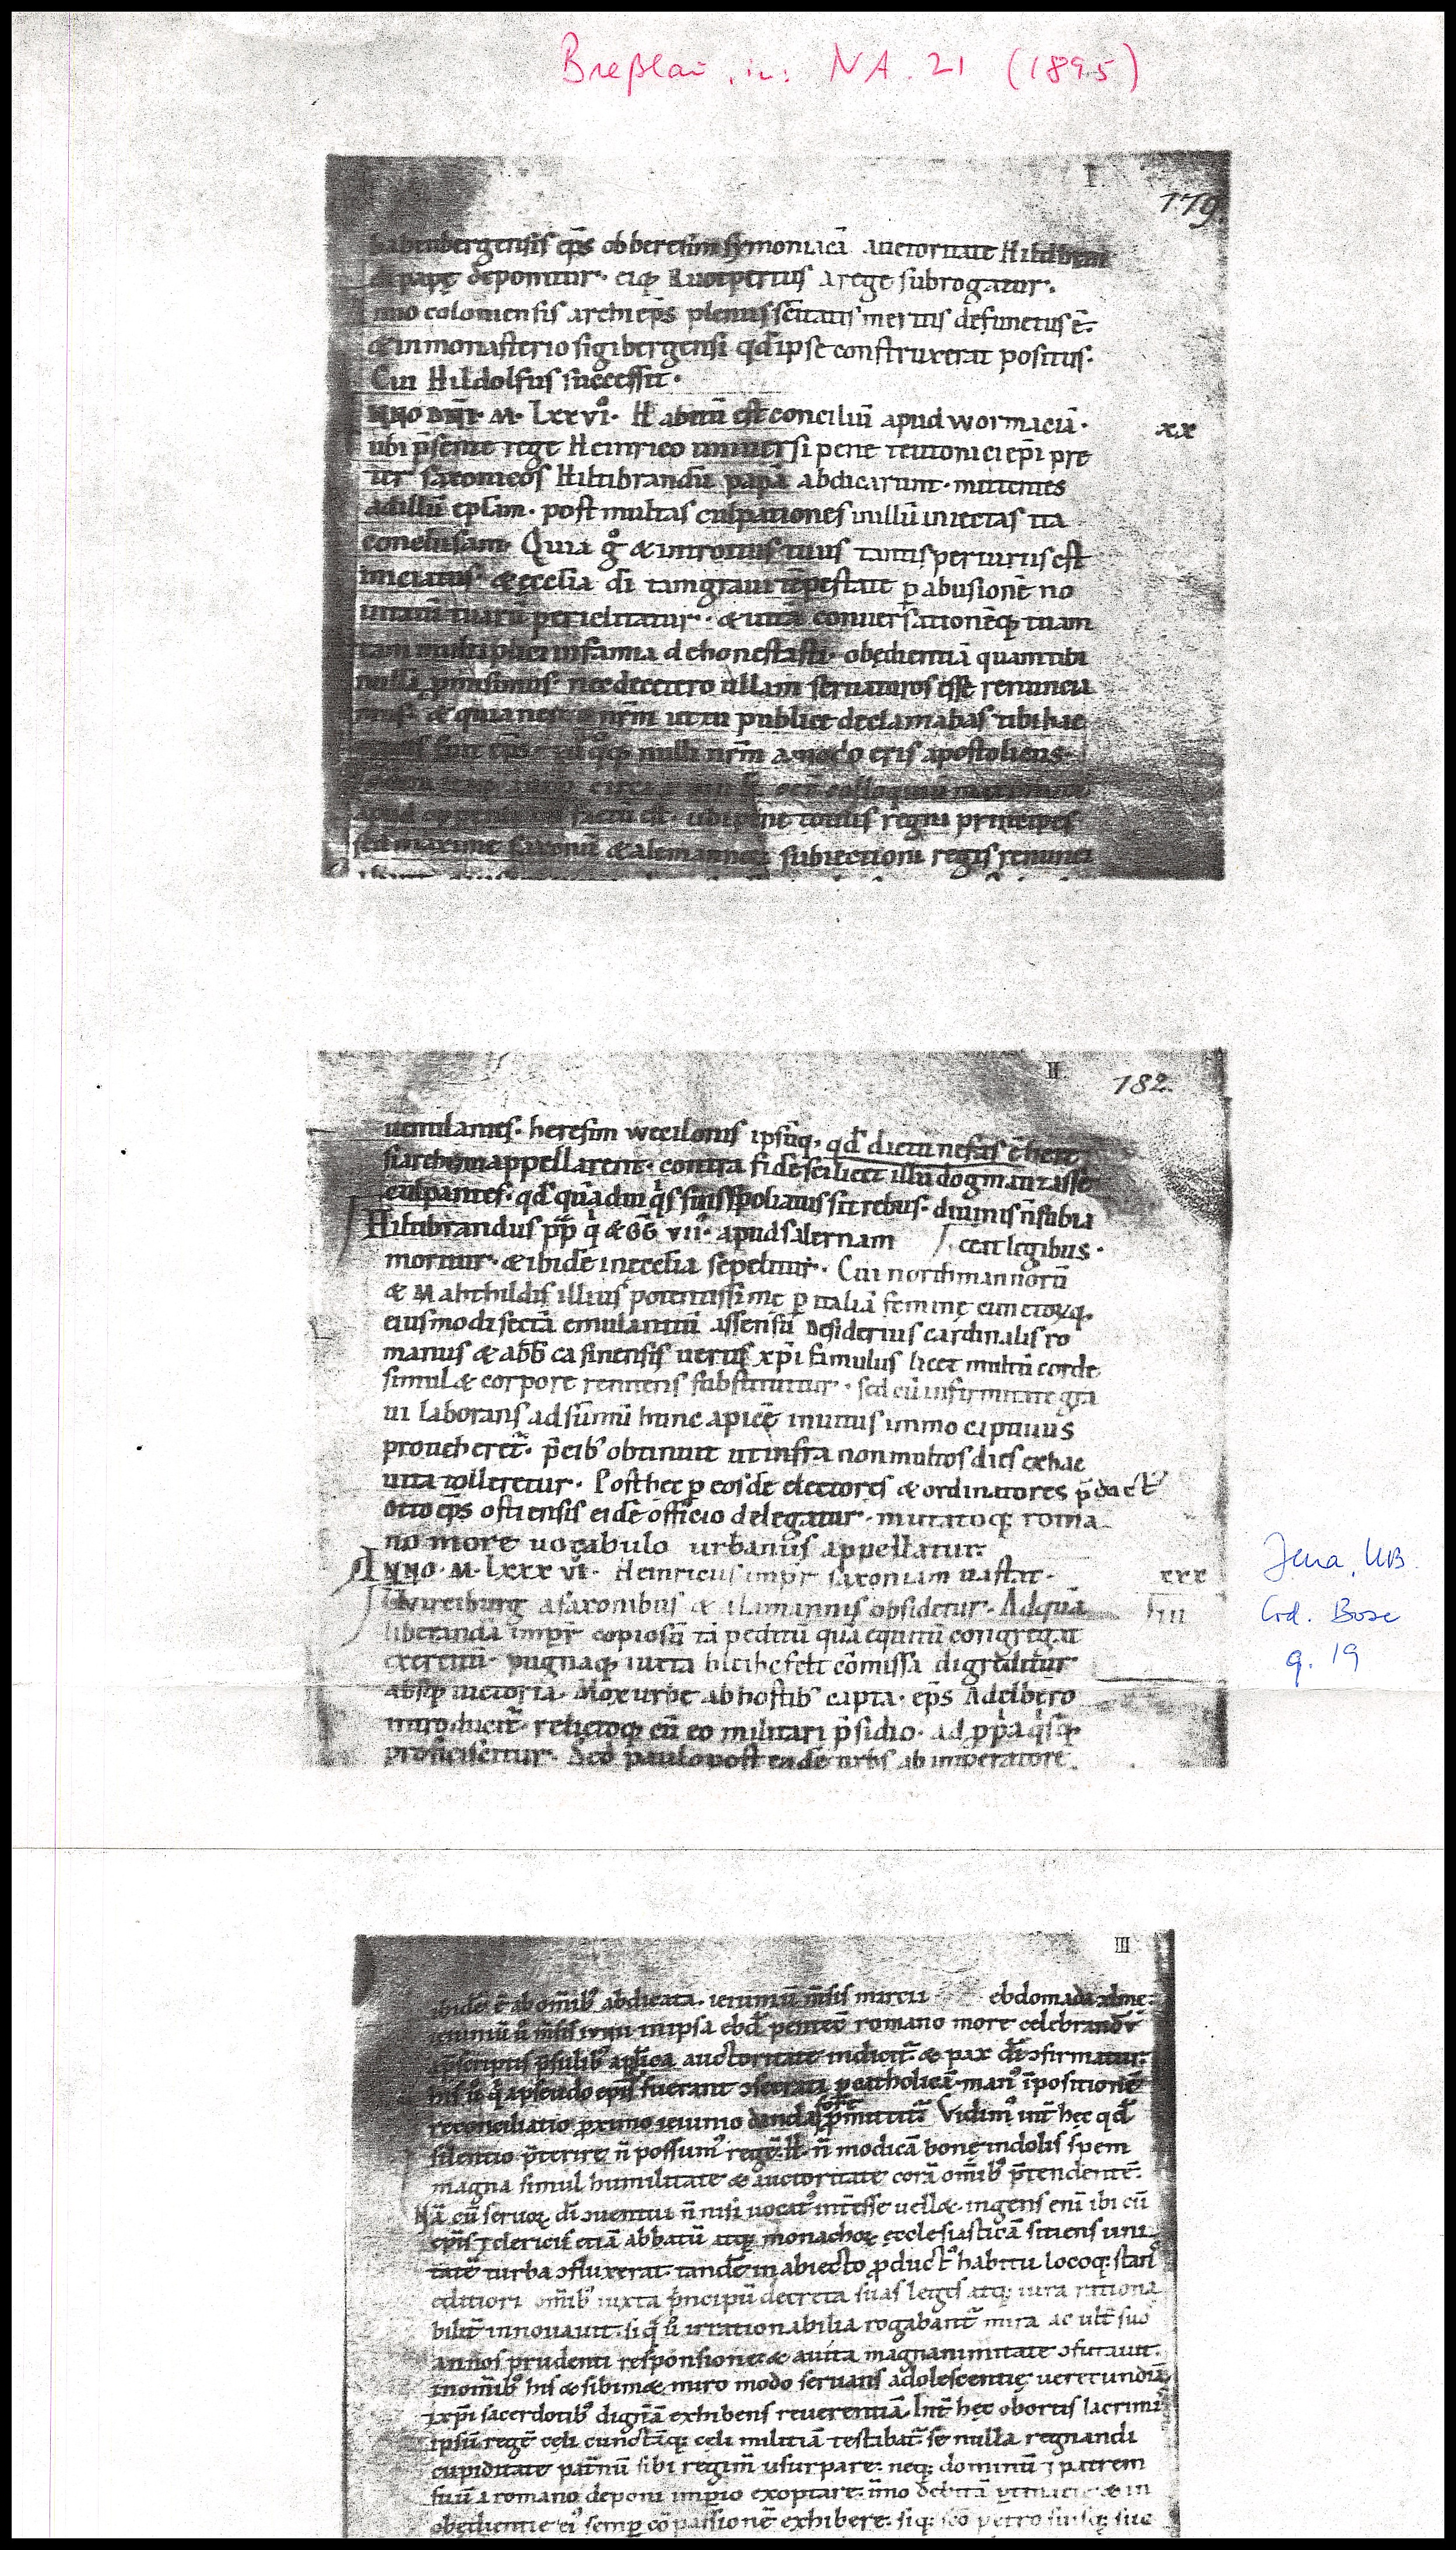 Breßlau, in: NA. 21 (1895)
I.
179.
babenbergensis ep̄s ob heresim symoniacā auctoritate Hiltibran
di papę deponitur· eiq; Ruotpertus a rege subrogatur.
nno coloniensis archiep̄s plenus sc̄itatis meritis defunctus ē·
& in monasterio sigibergensi qd̄ ipse construxerat positus·
Cui Hildolfus successit·
NNO DN̄I· M· Lxxvi· Habitū est conciliū apud wormaciā·
xx
ubi p̄sente rege Heinrico universi pene teutonici ep̄i pre
ter saxonicos Hiltibrandū papā abdicarunt· mittentes
ad illū ep̄lam· post multas culpationes in illū iniectas ita
conclusam· Quia g̊ & introitus tuus tantis periuriis est
initiatus· & ęcclia dī tam gravi tēpestate p abusionē no
uitatū tuarū periclitatur· & uitā conuersationēq; tuam
tam multiplici infamia dehonestasti· obędientiā quam tibi
nullā p̄misimus· nec de cetero ullam seruaturos esse renuncia
mus· & quia nemo nr̄m ut tu publice declamabas tibi hac
tenus fuit ep̄s· tu q̊q; nulli nr̄m amodo eris apostolicus·
apud oppenheim factū est· ubi pene totius regni principes
sed maxime saxonū & alemannoꝝ subiectioni regis renuncia
II.
182.
uentilantes· heresim wecilonis ipsūq, qd̄ dictu nefas ē here
siarcham appellarent· contra fidē scilicet illū dogmatizasse
culpantes· qd̄ quādiu q̇s suis spoliatus sit rebus· diuinis n̄ subia
Hiltibrandus pp̄ q̇ & GG̅ vii· apud salernam ceat legibus·
moritur· & ibidē in ecclia sepelitur· Cui northmannorū
& Mahthildis illius potentissimę p italiā feminę cunctoꝝq,
eiusmodi sectā emulantiū assensū Desiderius cardinalis ro
manus & abb̄ casinensis uerus xp̄i famulus licet multū corde
simul & corpore renitens substituitur· sed cū infirmitate gra
ui laborans ad sūmū hunc apicē inuitus immo captiuus
proueheret̄· p̄cib' obtinuit ut infra non multos dies ex hac
uita tolleretur· Post hec p eosdē electores & ordinatores p̄dict'
Otto ep̄s ostiensis eidē officio delegatur· mutatoq; roma
no more uocabulo urbanus appellatur·
ANNO· M· Lxxx vi· Heinricus imp̄r saxoniam uastat·
xxx
Wirciburg a saxonibus & alamannis obsidetur· Ad quā
iii
liberandā imp̄r copiosū tā peditū quā equitū congregat
exercitū· pugnaq; iuxta bleihcfelt cōmissa digreditur
absq; uictoria· Mox urbe ab hostib' capta· ep̄s Adelbero
introducit̄· relictoq; cū eo militari p̄sidio· ad ppa q̇sq;
proficiscitur· Sed paulo post eadē urbs ab imperatore
Jena, UB
Cod. Bose
q. 19
III
ibidē ē ab omīb' abdicata· ieiuniū m̄sis marcii ebdomada xlme·
ieiuniū ů m̄sis iunii in ipsa ebd̄ pentec̄ romano more celebrand̄
ap̄lica auctoritate indicit̄· & pax dī ↄfirmatur·
his ů q̇ a pseudo ep̄is fuerant ↄsecrati p catholicā man' īpositionē
reconciliatio pximo ieiunio danda fore p̄mittit̄ Vidim' int̄ hec qd̄
silentio p̄terire n̄ possum' regē·H· n̄ modicā bonę indolis spem
magna simul humilitate & auctoritate corā omīb' p̄tendentē·
Nā cū seruoꝝ dī ↄuentui n̄ nisi uocat' int̄esse uell&· ingens enī ibi cū
ep̄is ⁊ clericis etiā abbatū atq; monachoꝝ ęcclesiasticā sitiens uni
tatē turba ↄfluxerat· tandē in abiecto pduct' habitu locoq; stans
editiori omīb' iuxta ṗncipū decreta suas leges atq; iura rationa
bilit̄ innouauit· siq̇ ů irrationabilia rogabant̄ mira ac ult̄ suos
annos prudenti responsione & auita magnanimitate ↄfutauit·
in omīb' his & sibimet miro modo seruans adolescentię uerecundiā
& xp̄i sacerdotib' dignā exhibens reuerentiā· Int̄ hec obortis lacrimis
ipsū regē cęli cunctāq; cęli militiā testibat̄ se nulla regnandi
cupiditate patnū sibi regim̄ usurpare· neq; dominū ⁊ patrem
suū a romano deponi impio exoptare· īmo debitā
obędientię ei' semp cōpassionē exhibere· siq; sc̄o petro suisq; suc